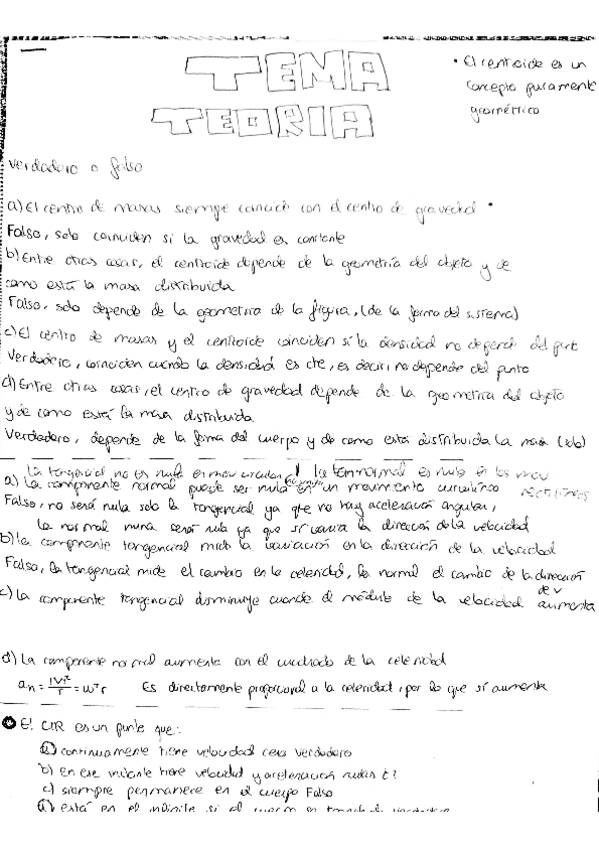 TEMA
TEORIA
• El centroide es un
concepto puramente
geométrico
Verdadero o falso
a) El centro de masas siempre coincide con el centro de gravedad •
Falso, solo coinciden si la gravedad es constante
b) Entre otras cosas, el centroide depende de la geometría del objeto y de
como está la masa distribuida
Falso, solo depende de la geometria de la figura, (de la forma del sistema)
c) El centro de masas y el centroide coinciden si la densidad no depende del punto
Verdadero, coinciden cuando la densidad es cte, es decir, no depende del punto
d) Entre otras cosas, el centro de gravedad depende de la geometria del objeto
y de como está la masa distribuida
Verdadero, depende de la forma del cuerpo y de como está distribuida la masa
La tangencial no es nula en mov circular / La normal es nula en los mov
rectilíneos
a) La componente normal puede ser nula en un movimiento curvilíneo
Falso, no será nula solo la tangencial ya que no hay aceleración angular,
la normal nunca será nula ya que sí varía la dirección de la velocidad
b) la componente tangencial mide la variación en la dirección de la velocidad
Falso, la tangencial mide el cambio en la celeridad, la normal el cambio de la dirección
de v
c) La componente tangencial disminuye cuando el módulo de la velocidad aumenta
d) La componente normal aumenta con el cuadrado de la celeridad
an = |V|²/r = w²r Es directamente proporcional a la celeridad, por lo que sí aumenta
El CIR es un punto que:
a) continuamente tiene velocidad cero Verdadero
b) en ese instante tiene velocidad y aceleración nulas ¿?
c) siempre permanece en el cuerpo Falso
d) está en el infinito si el